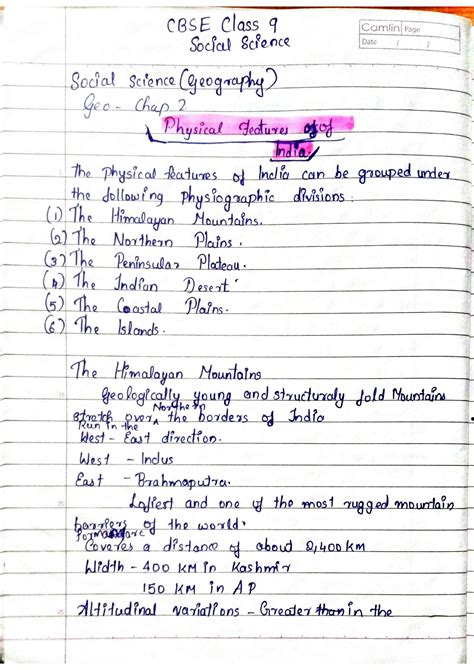 CBSE Class 9
Social Science
Camlin Page
Date / /
Social Science (Geography)
Geo - Chap 2
Physical features of of
India
The Physical features of India can be grouped under
the following physiographic divisions:
(1) The Himalayan Mountains.
(2) The Northern Plains.
(3) The Peninsular Plateau.
(4) The Indian Desert
(5) The Coastal Plains.
(6) The Islands.
The Himalayan Mountains
Geologically young and structuraly fold Mountains
stretch over Northern the borders of India
Run in the
West - East direction.
West - Indus
East - Brahmaputra.
Lofiest and one of the most rugged mountain
barriers of the world.
Form an arc
Coveres a distance of about 2,400 KM
Width - 400 KM in Kashmir
150 KM in AP
Altitudinal variations - Greater than in the